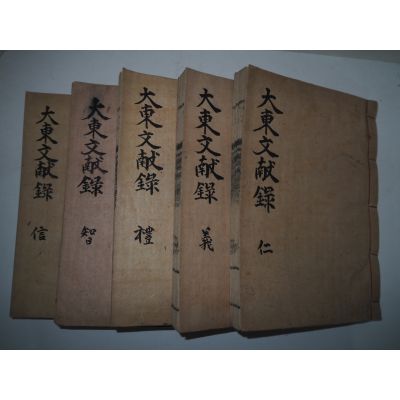 大東文献錄 仁
大東文献錄 義
大東文献錄 禮
大東文献錄 智
大東文献錄 信